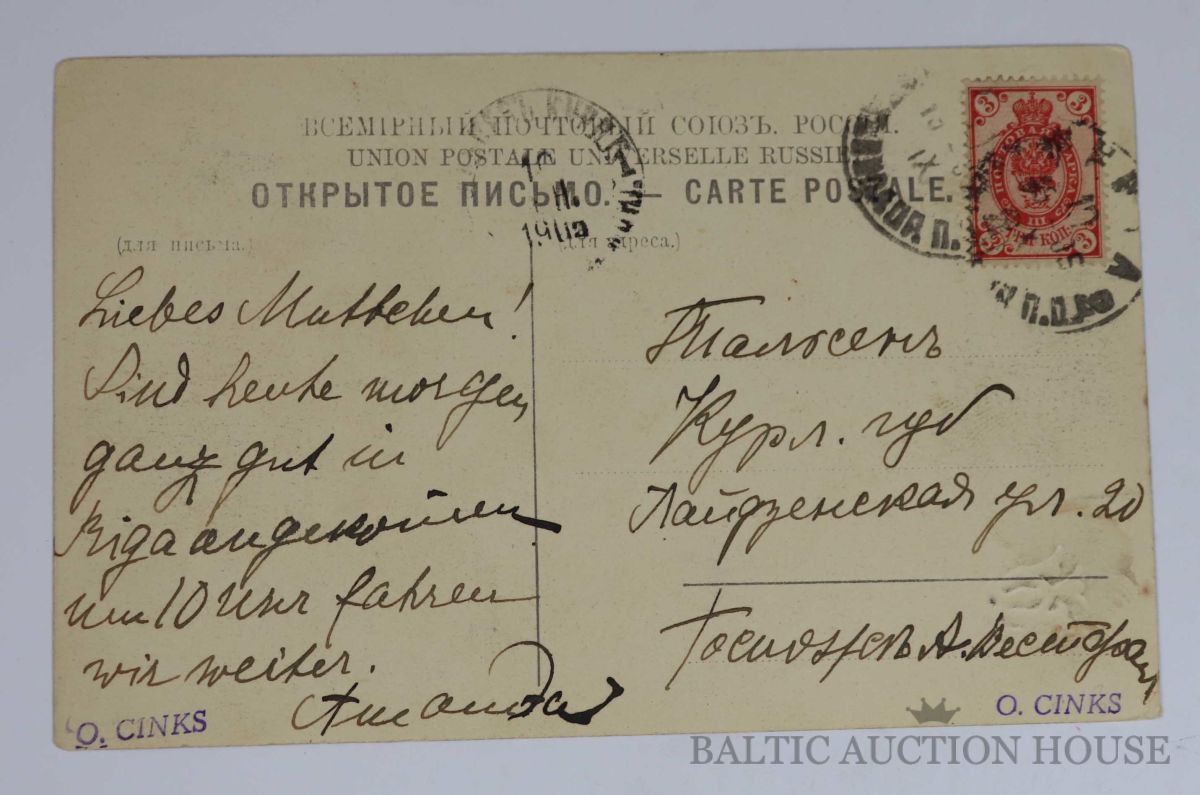 ВСЕМІРНЫЙ ПОЧТОВЫЙ СОЮЗЪ. РОССІЯ.
UNION POSTALE UNIVERSELLE RUSSIE
ОТКРЫТОЕ ПИСЬМО. — CARTE POSTALE.
(для письма.)
(для адреса.)
3 3
ПОЧТОВАЯ МАРКА
III
ТРИ КОП.
3 3
Liebes Muttchen!
Sind heute morgen
ganz gut in
Riga angekom̄en
um 10 Uhr fahren
wir weiter.
Amanda
Тальсенъ
Курл. губ
Лайдзенская ул. 20
Госпожѣ А. Вестфал
O. CINKS
O. CINKS
BALTIC AUCTION HOUSE